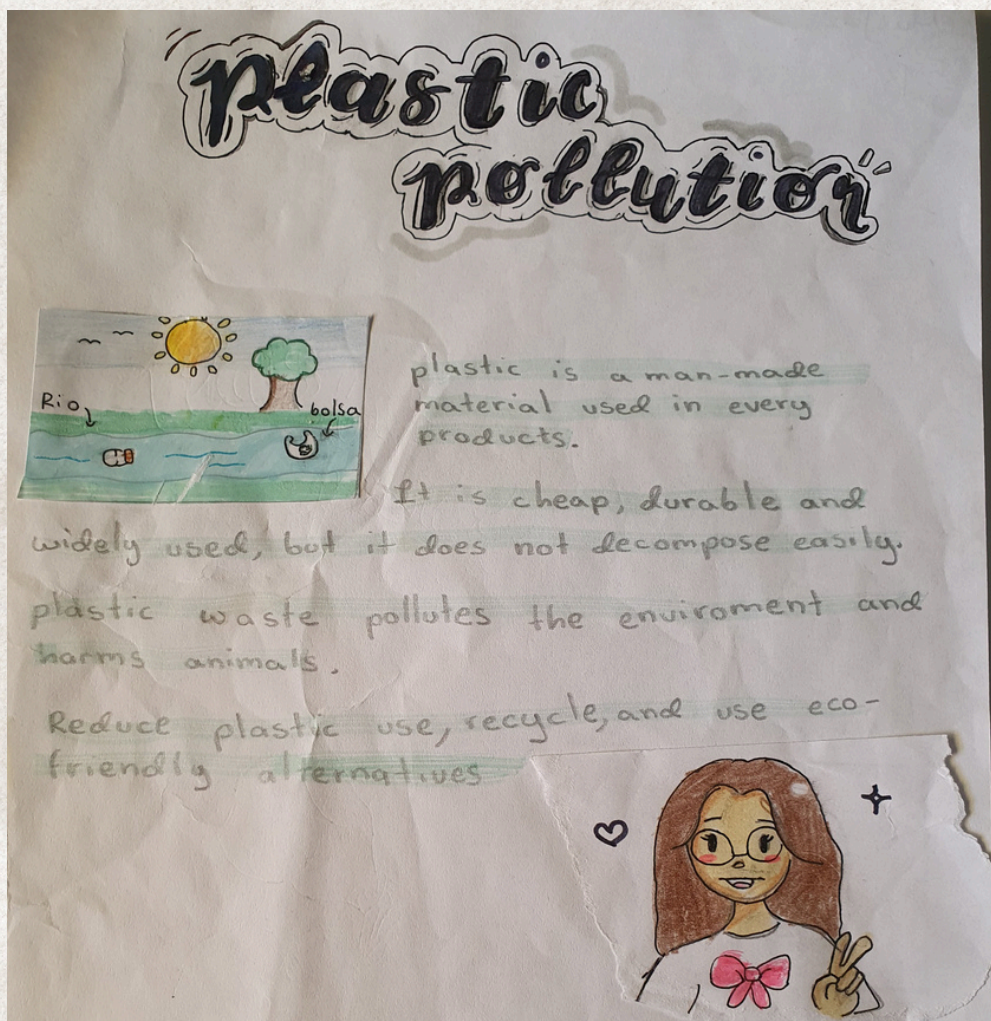 plastic
pollution
Rio
bolsa
plastic is a man-made
material used in every
products.
It is cheap, durable and
widely used, but it does not decompose easily.
plastic waste pollutes the enviroment and
harms animals.
Reduce plastic use, recycle, and use eco-
friendly alternatives